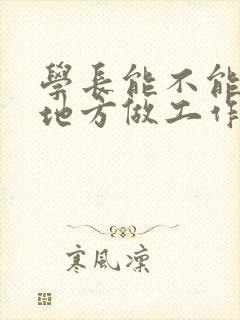 學長能不能
地方做工作
寒風凜